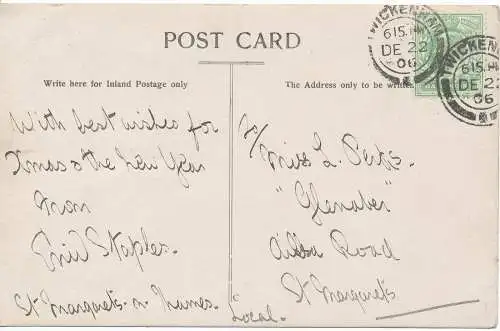 POST CARD
TWICKENHAM
6 15 PM
DE 22
06
TWICKENHAM
6 15 PM
DE 22
06
Write here for Inland Postage only
The Address only to be written
With best wishes for
Xmas & the New Year
From
Enid Staples.
St. Margarets. n. Thames.
To/
Miss L.
"Glenaber"
Ailsa Road
St Margarets
Local.